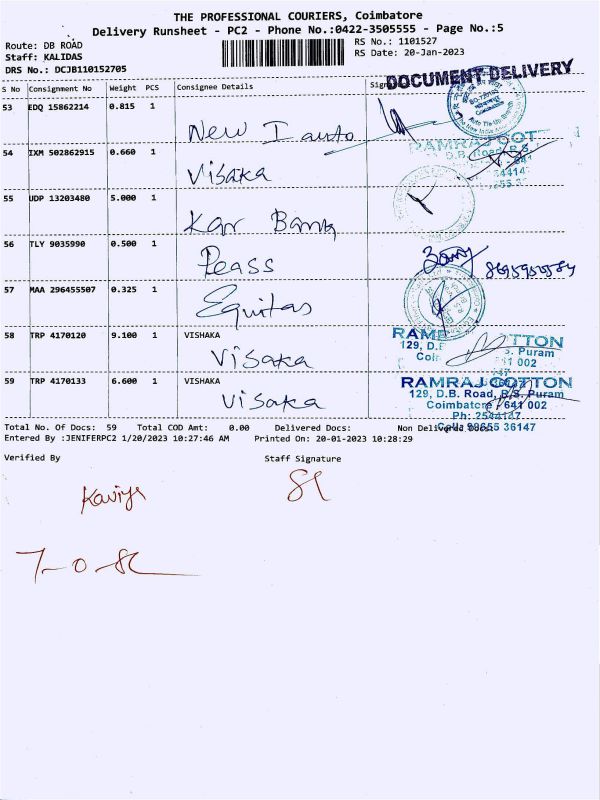 THE PROFESSIONAL COURIERS, Coimbatore
Delivery Runsheet - PC2 - Phone No.:0422-3505555 - Page No.:5
Route: DB ROAD
RS No.: 1101527
Staff: KALIDAS
RS Date: 20-Jan-2023
DRS No.: DCJB110152705
DOCUMENT DELIVERY
S No Consignment No Weight PCS Consignee Details
53 EDQ 15862214 0.815 1
New I auto
RAMRAJ COTTON
54 IXM 502862915 0.660 1
Visaka
55 UDP 13203480 5.000 1
Kar Bank
56 TLY 9035990 0.500 1
Peass
57 MAA 296455507 0.325 1
Equitas
58 TRP 4170120 9.100 1 VISHAKA
Visaka
59 TRP 4170133 6.600 1 VISHAKA
Visaka
RAMRAJ COTTON
129, D.B. Road, R.S. Puram
Coimbatore - 641 002
Ph: 2544147
Cell: 98655 36147
Total No. Of Docs: 59 Total COD Amt: 0.00 Delivered Docs: Non Delivered
Entered By :JENIFERPC2 1/20/2023 10:27:46 AM Printed On: 20-01-2023 10:28:29
Verified By Staff Signature
Kaviya